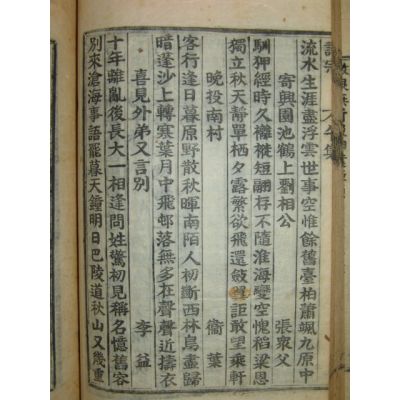 流水生涯盡浮雲世事空惟餘舊臺柏蕭颯九原中
寄興園池鶴上劉相公
張衆父
馴狎經時久短翮存不隨淮海變空愧稻梁恩
獨立秋天靜單栖夕露繁欲飛還斂翼詎敢望乘軒
晚投南村 衞葉
客行逢日暮原野散秋暉南陌人初斷西林鳥盡歸
暗蓬沙上轉寒葉月中飛邨落無多在聲聲近擣衣
喜見外弟又言別 李益
十年離亂後長大一相逢問姓驚初見稱名憶舊容
別來滄海事語罷暮天鐘明日巴陵道秋山又幾重